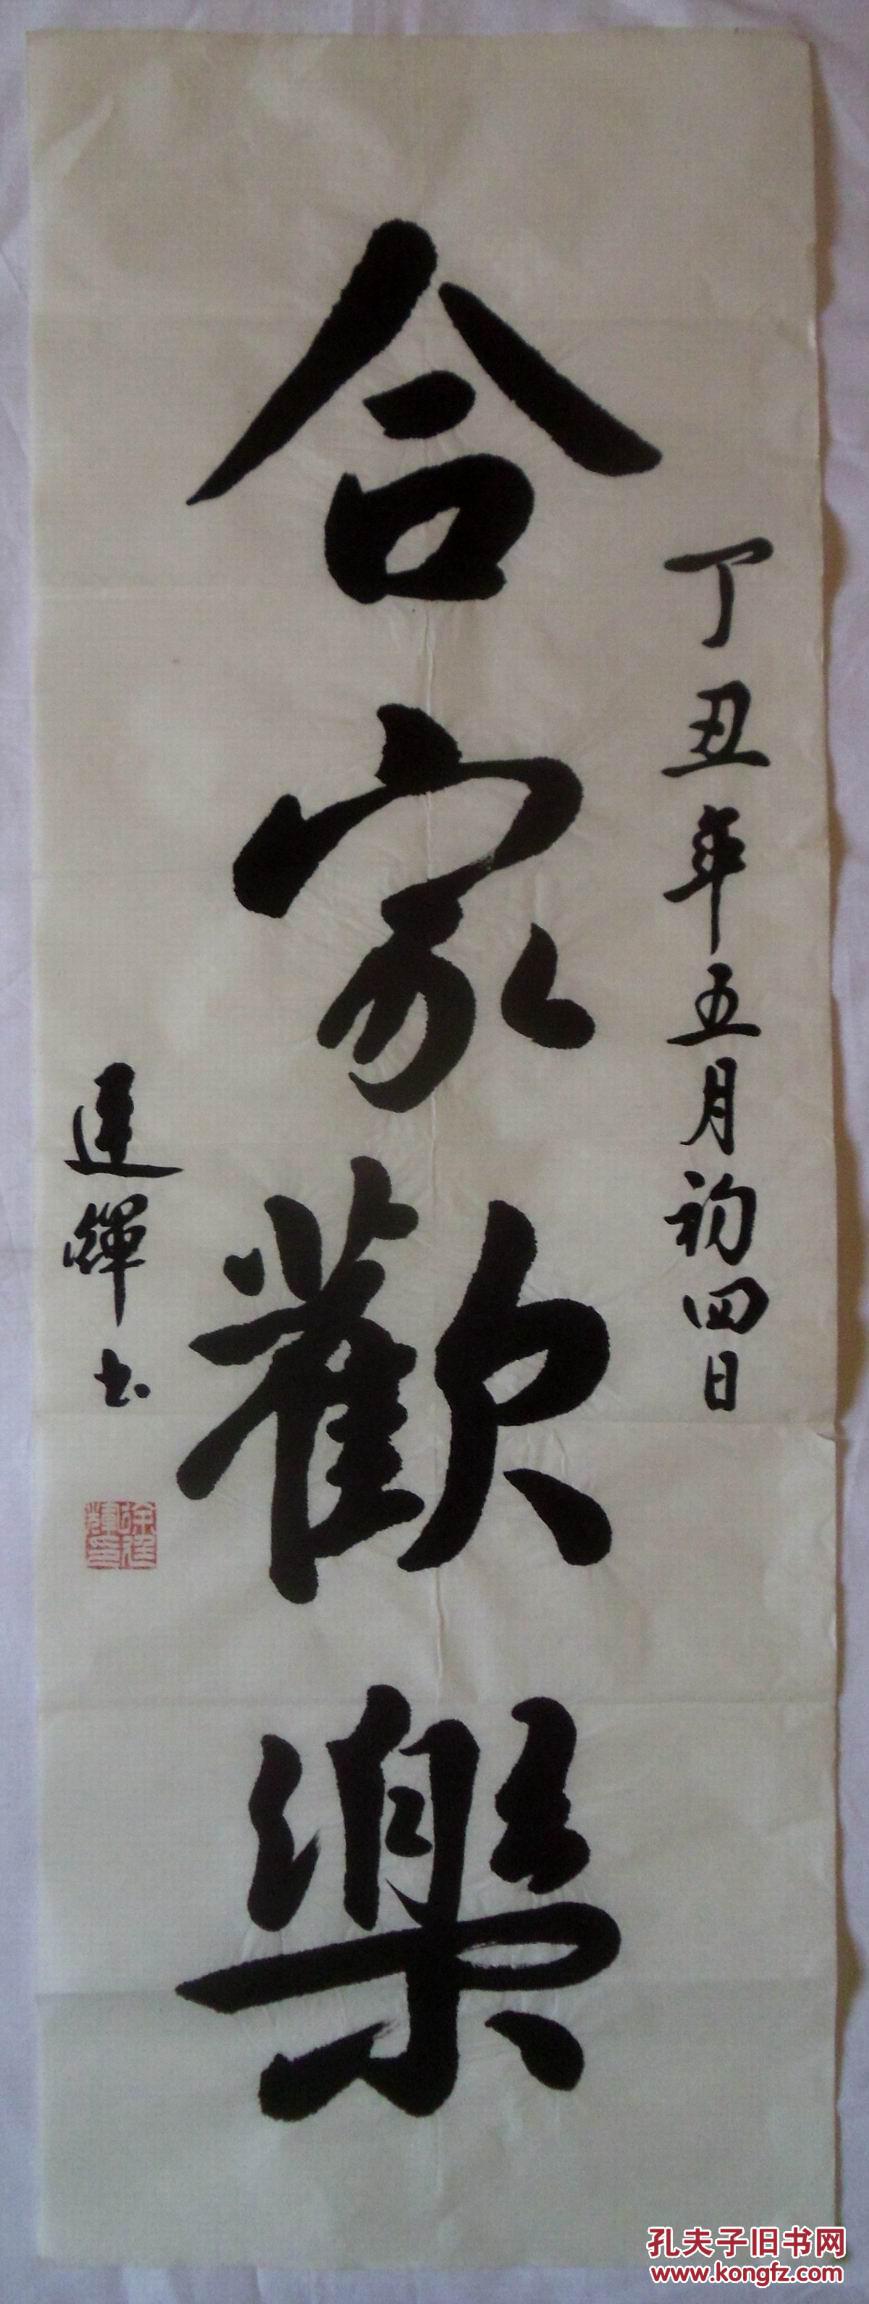 丁丑年五月初四日
合家歡樂
達輝书
孔夫子旧书网
www.kongfz.com